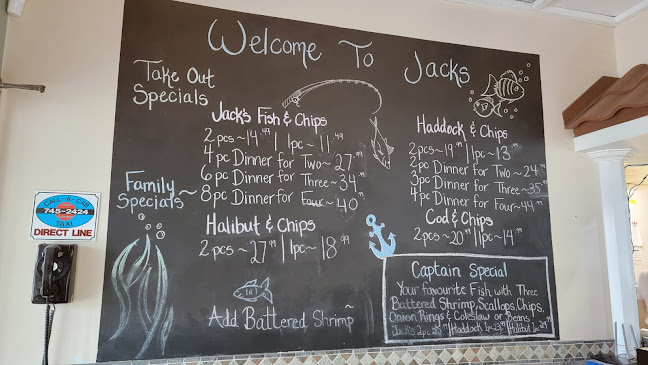 Welcome To Jacks
Take Out
Specials
Jack's Fish & Chips
2pcs~14.49 | 1pc~11.49
4 pc Dinner for Two~27.99
6 pc Dinner for Three~34.99
8 pc Dinner for Four~40.99
Family
Specials~
Halibut & Chips
2pcs~27.99 | 1pc~18.99
Add Battered Shrimp~
Haddock & Chips
2pcs~19.99 | 1pc~13.99
2pc Dinner for Two~24.99
3pc Dinner for Three~35.99
4pc Dinner for Four~44.99
Cod & Chips
2pcs~20.99 | 1pc~14.99
Captain Special
Your favourite Fish with Three
Battered Shrimp, Scallops, Chips,
Onion Rings & Coleslaw or Beans
Jack's 2pc Haddock Halibut
CALL-A-CAB
745-2424
TAXI
DIRECT LINE